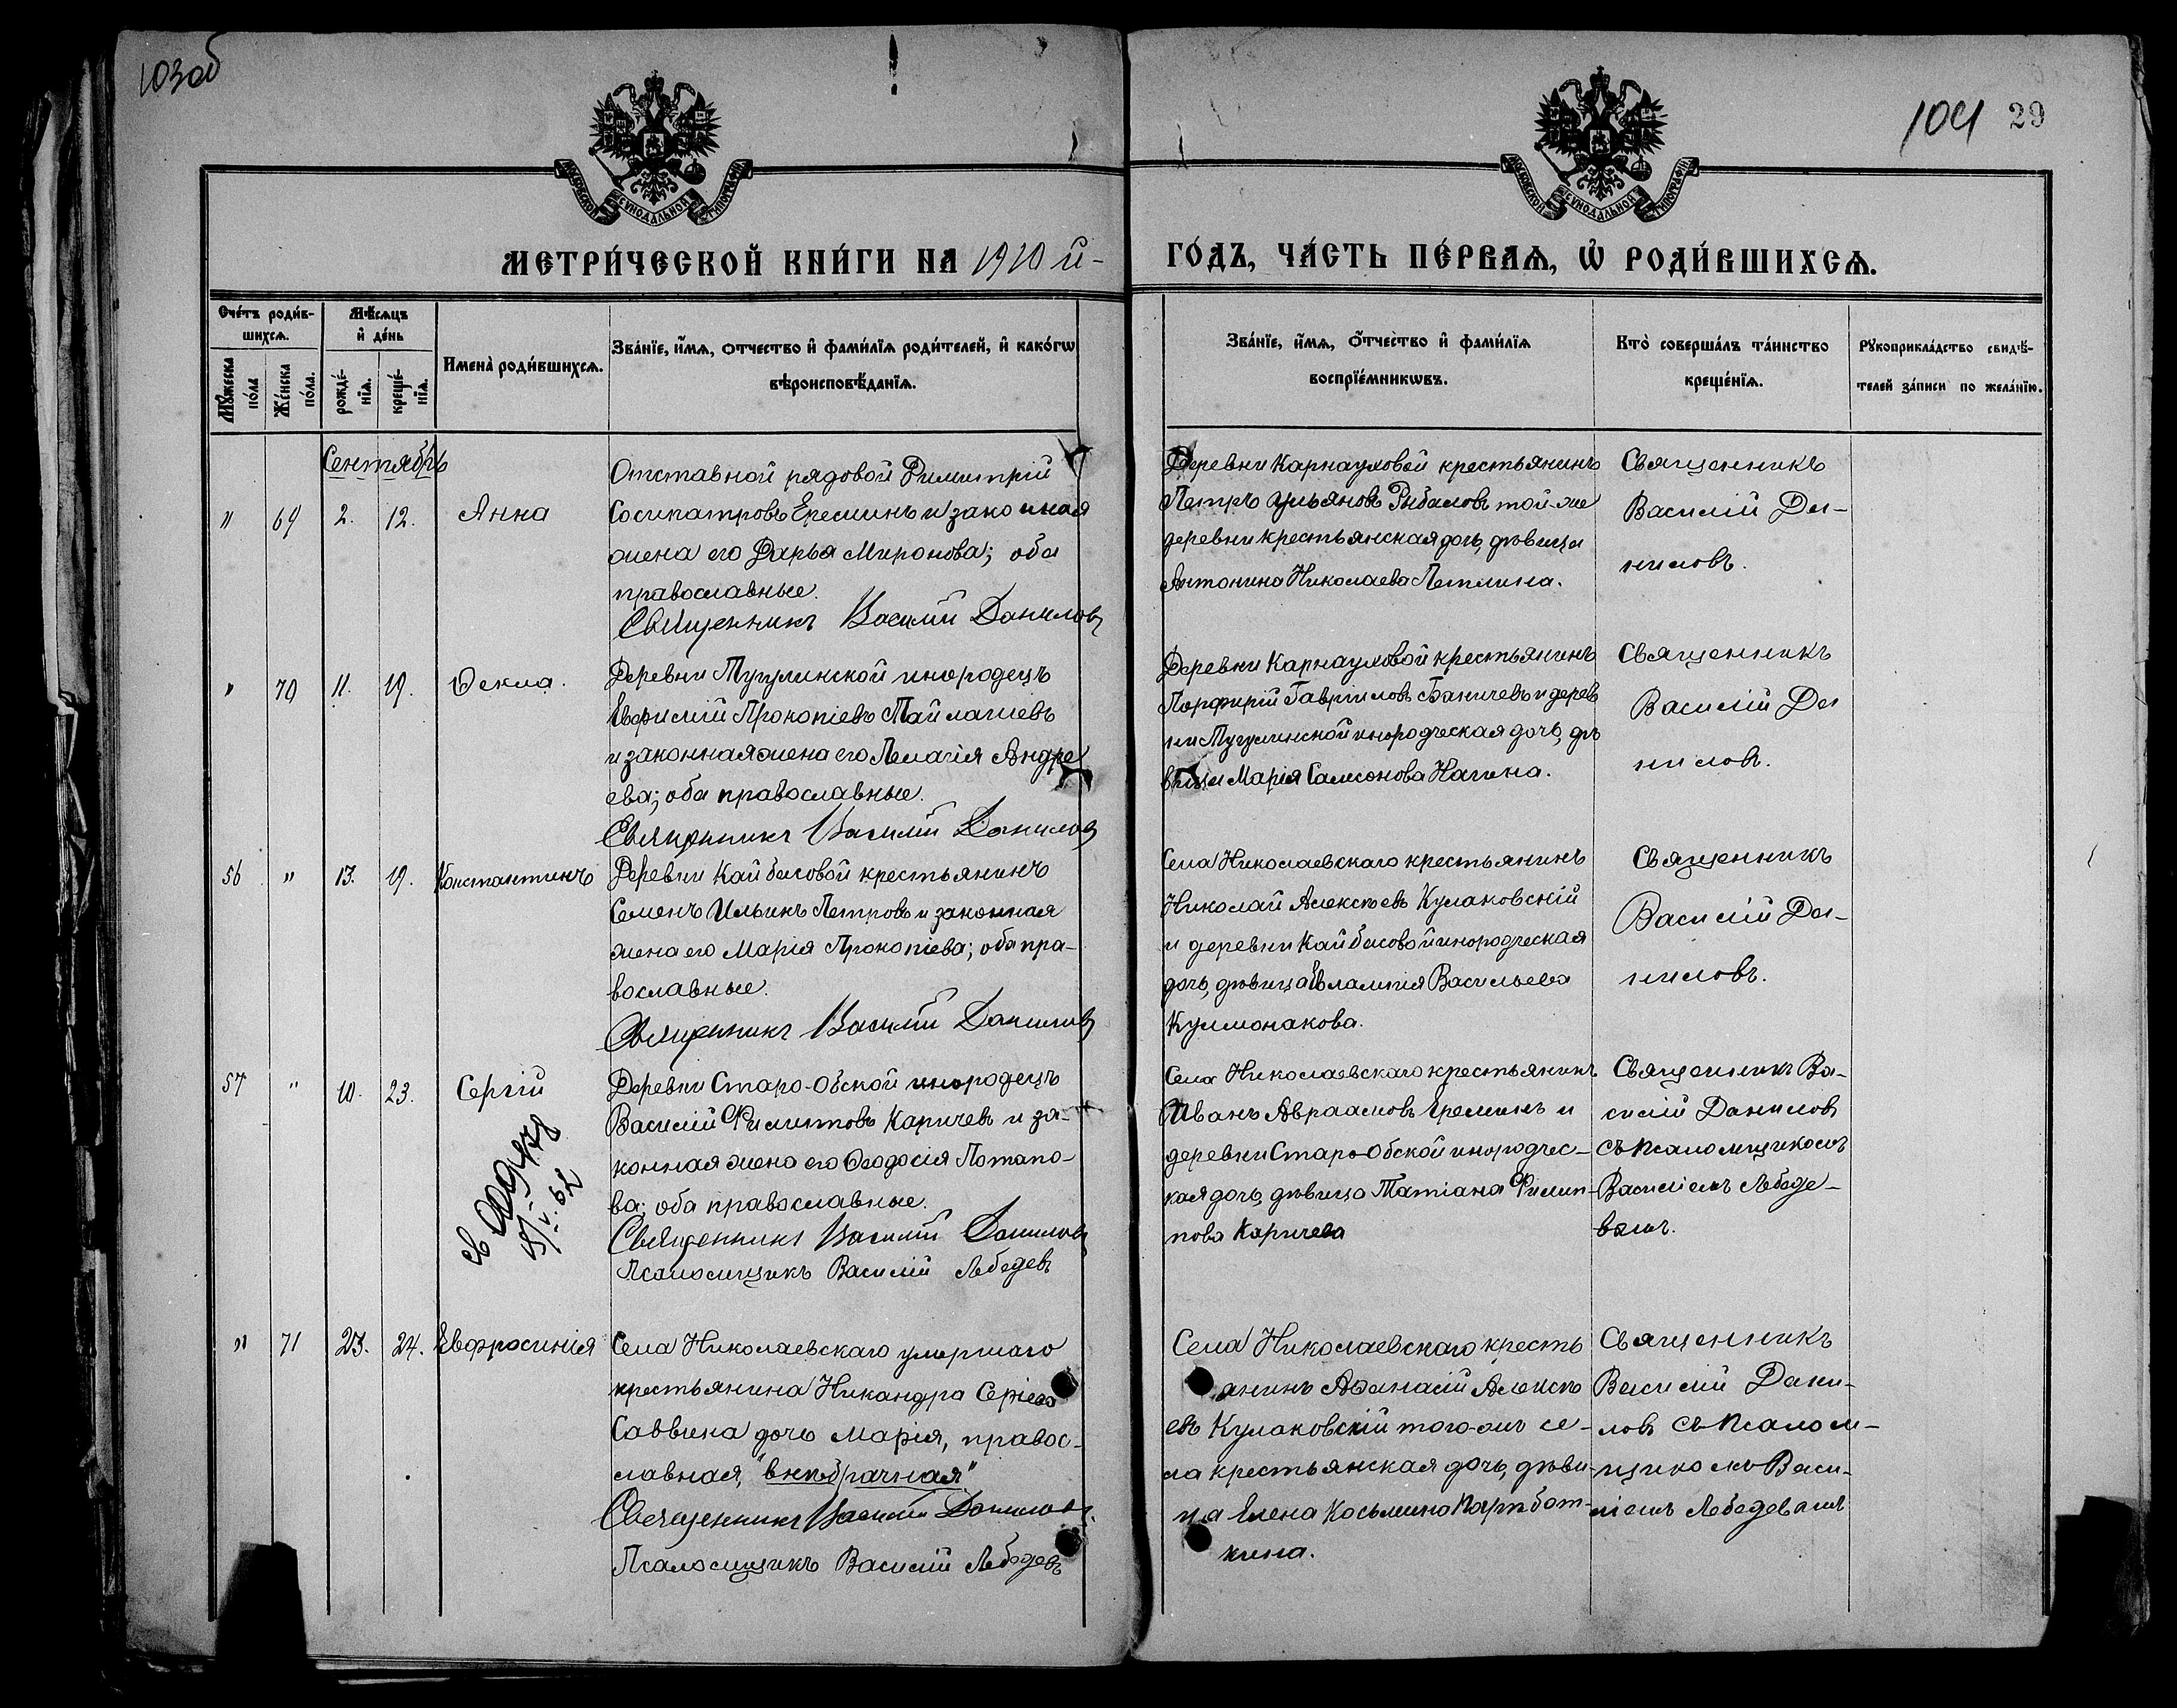 103об
104 29
МОСКОВСКОЙ СѴНОДАЛЬНОЙ ТИПОГРАФІИ
МОСКОВСКОЙ СѴНОДАЛЬНОЙ ТИПОГРАФІИ
МЕТРИ́ЧЕСКОЙ КНИ́ГИ НА 1910 й-
ГО́ДЪ, ЧА́СТЬ ПЕ́РВАѦ, Ѡ҆ РОДИ́ВШИХСѦ.
Сче́тъ роди́в-
шихсѧ.
Мꙋ́жеска по́ла
Же́нска по́ла.
Мѣ́сѧцъ
и҆ де́нь
рожде́-
нїѧ.
креще́-
нїѧ.
Имена̀ роди́вшихсѧ.
Зва́нїе, и҆́мѧ, ѻ҆́тчество и҆ фами́лїѧ роди́телей, и҆ како́гѡ
вѣроисповѣ́данїѧ.
Зва́нїе, и҆́мѧ, ѻ҆́тчество и҆ фами́лїѧ
воспрїе́мникѡвъ.
Кто̀ соверша́лъ та́инство
креще́нїѧ.
Рꙋкоприкла́дство свидѣ́-
телей за́писи по жела́нїю.
Сентябрь
" 69 2. 12. Анна
Отставной рядовой Димитрій
Сосипатровъ Ереминъ и законная
жена его Дарья Миронова; оба
православные.
Священникъ Василій Даниловъ
Деревни Карнауховой крестьянинъ
Петръ Ульяновъ Рыбаловъ той-же
деревни крестьянская дочь, дѣвица
Антонина Николаева Петлина.
Священникъ
Василій Да-
ниловъ.
" 70 11. 19. Ѳекла.
Деревни Тугулинской инородецъ
Евфимій Прокопіевъ Тайлашевъ
и законная жена его Пелагія Андре
ева; оба православные.
Священникъ Василій Даниловъ
Деревни Карнауховой крестьянинъ
Порфирій Гавриловъ Баничевъ и дерев
ни Тугулинской инородческая дочь, дѣ
вица Марія Самсонова Нагина.
Священникъ
Василій Да
ниловъ.
56 " 13. 19. Константинъ
Деревни Кайбасовой крестьянинъ
Семенъ Ильинъ Петровъ и законная
жена его Марія Прокопіева; оба пра-
вославные.
Священникъ Василій Даниловъ
Села Николаевскаго крестьянинъ
Николай Алексѣевъ Кулаковскій
и деревни Кайбасовой инородческая
дочь, дѣвица Евлампія Васильева
Кулмонакова.
Священникъ
Василій Да-
ниловъ.
57 " 10. 23. Сергій
Деревни Старо-Обской инородецъ
Василій Филиповъ Каричевъ и за-
конная жена его Ѳеодосія Потапо-
ва; оба православные.
Священникъ Василій Даниловъ
Псаломщикъ Василій Лебедевъ
Села Николаевскаго крестьянинъ
Иванъ Авраамовъ Ереминъ и
деревни Старо-Обской инородчес-
кая дочь, дѣвица Татіана Филип-
пова Каричева
Священникъ Ва-
силій Даниловъ
съ псаломщикомъ
Василіемъ Лебеде-
вымъ.
" 71 23. 24. Евфросинія
Села Николаевскаго умершаго
крестьянина Никандра Сергіева
Саввина дочь Марія, правос-
лавная, "внѣбрачная"
Священникъ Василій Даниловъ.
Псаломщикъ Василій Лебедевъ
Села Николаевскаго кресть
янинъ Аѳанасій Алексѣ
евъ Кулаковскій того-же се-
ла крестьянская дочь, дѣви-
ца Елена Косьмина
кина.
Священникъ
Василій Дани-
ловъ съ псалом-
щикомъ Васи-
ліемъ Лебедевымъ